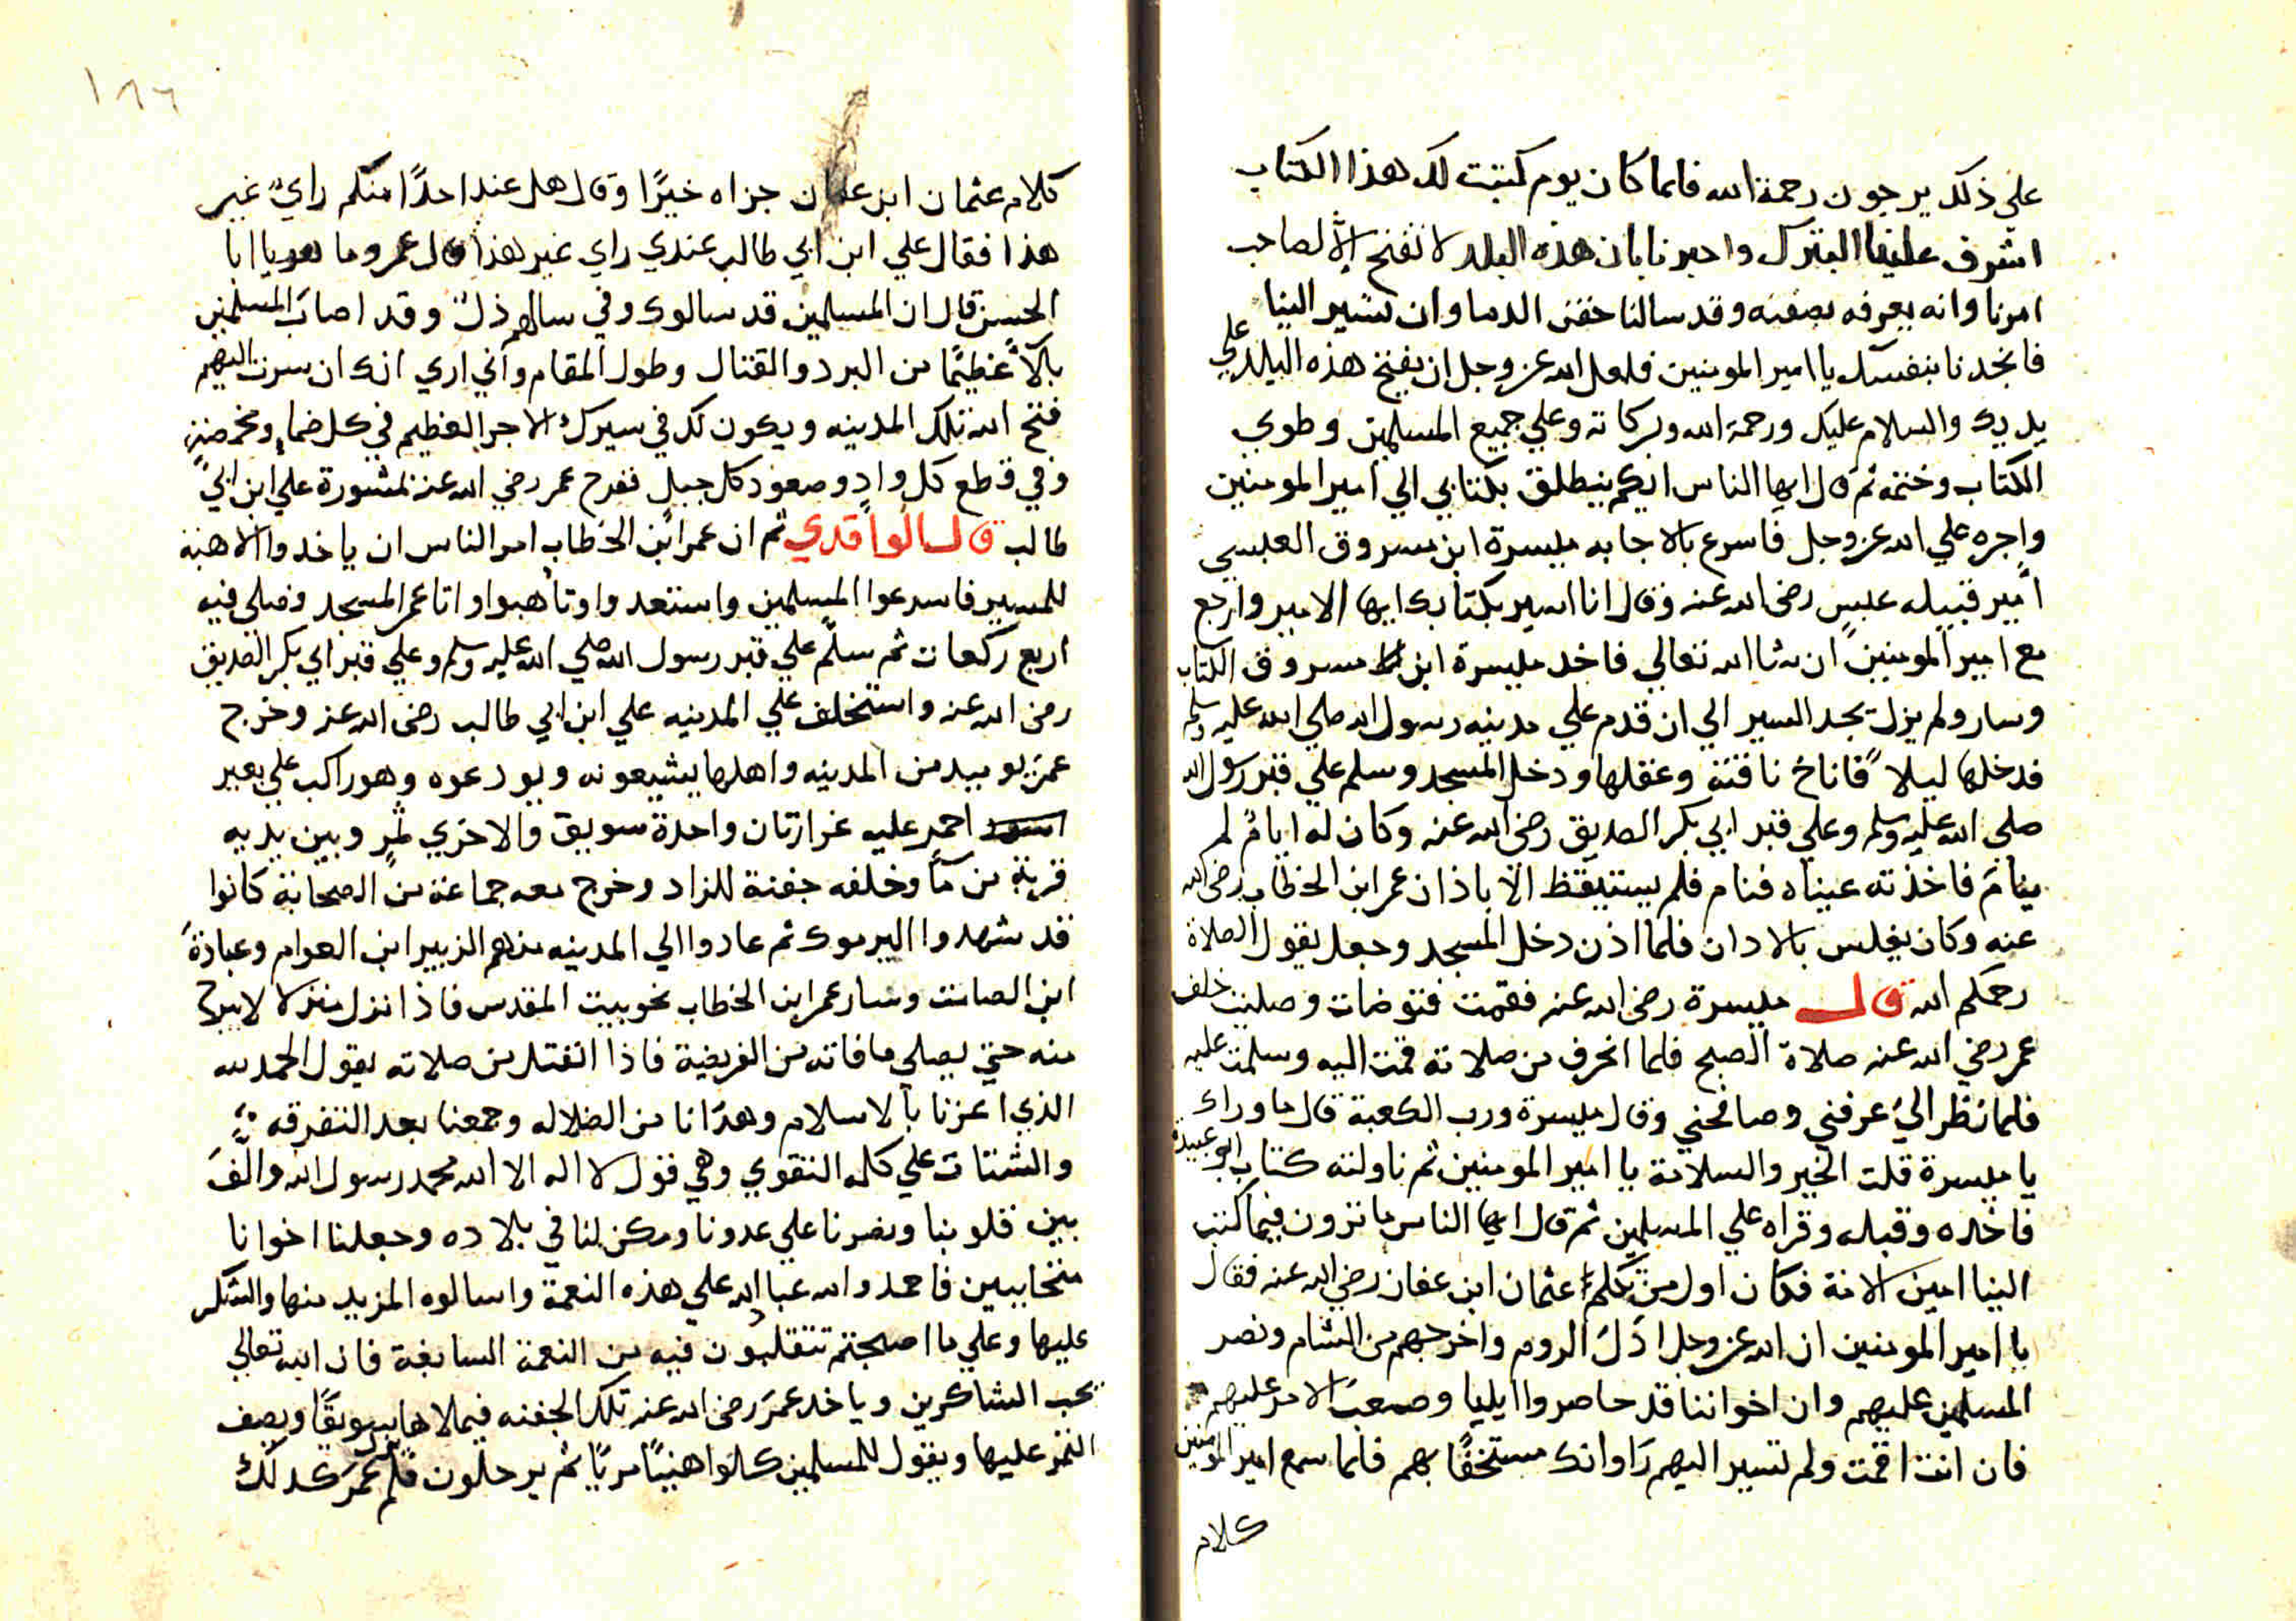 علي ذلك يرجون رحمة الله فلما كان يوم كتبت لك هذا الكتاب
اشرف علينا البترك واخبرنا بان هذه البلد لا تفتح الا لصاحب
امرنا وانه يعرفه بصفته وقد سالنا حقن الدما وان تسير الينا
فانجدنا بنفسك يا امير المومنين فلعل الله عز وجل ان يفتح هذه البلد علي
يديك والسلام عليك ورحمة الله وبركاته وعلي جميع المسلمين وطوي
الكتاب وختمه ثم قال ايها الناس ايكم ينطلق بكتابي الي امير المومنين
واجره علي الله عز وجل فاسرع بالاجابه ميسرة ابن مسروق العبسي
امير قبيله عبس رضي الله عنه وقال انا اسير بكتابك ايها الامير وارجع
مع امير المومنين ان شا الله تعالي فاخد ميسرة ابن مسروق الكتاب
وسار ولم يزل يجد السير الي ان قدم علي مدينه رسول الله صلي الله عليه وسلم
فدخلها ليلا فاناخ ناقته وعقلها ودخل المسجد وسلم علي قبر رسول الله
صلي الله عليه وسلم وعلي قبر ابي بكر الصديق رضي الله عنه وكان له ايام لم
ينام فاخذته عيناه فنام فلم يستيقظ الا باذان عمر ابن الخطاب رضي الله
عنه وكان يغلس بالادان فلما اذن دخل المسجد وجعل يقول الصلاة
رحمكم الله قال ميسرة رضي الله عنه فقمت فتوضات وصليت خلف
عمر رضي الله عنه صلاة الصبح فلما انحرف من صلاته قمت اليه وسلمت عليه
فلما نظر الي عرفني وصافحني وقال ميسرة ورب الكعبة قال ما وراك
يا ميسرة قلت الخير والسلامة يا امير المومنين ثم ناولته كتاب ابو عبيدة
فاخده وقبله وقراه علي المسلمين ثم قال ايها الناس ما ترون فيما كتب
الينا امين الامة فكان اول من تكلم عثمان ابن عفان رضي الله عنه فقال
يا امير المومنين ان الله عز وجل اذل الروم واخرجهم من الشام ونصر
المسلمين عليهم وان اخواننا قد حاصروا ايليا وصعب الامر عليهم
فان انت اقمت ولم تسير اليهم راوانك مستخفا بهم فلما سمع امير المومنين
كلام
١٨٦
كلام عثمان ابن عفان جزاه خيرا وقال هل عند احدا منكم راي غير
هذا فقال علي ابن ابي طالب عندي راي غير هذا قال عمر وما هو يا ابا
الحسن قال ان المسلمين قد سالوك وفي سالهم ذل وقد اصاب المسلمين
بلآ عظيما من البرد والقتال وطول المقام واني اري انك ان سرت اليهم
فتح الله تلك المدينه ويكون لك في سيرك الاجر العظيم في كل ضما ومخمصة
وفي قطع كل واد وصعود كل جبل ففرح عمر رضي الله عنه بمشورة علي ابن ابي
طالب قال الواقدي ثم ان عمر ابن الخطاب امر الناس ان ياخدوا الاهبة
للمسير فاسرعوا المسلمين واستعدوا وتاهبوا واتا عمر المسجد وصلي فيه
اربع ركعات ثم سلم علي قبر رسول الله صلي الله عليه وسلم وعلي قبر ابي بكر الصديق
رضي الله عنه واستخلف علي المدينه علي ابن ابي طالب رضي الله عنه وخرج
عمر من المدينه واهلها يشيعونه ويودعوه وهو راكب علي بعير
احمر عليه غرارتان واحدة سويق والاخري تمر وبين يديه
قربة من مآ وخلفه جفنة للزاد وخرج معه جماعة من الصحابة كانوا
قد شهدوا اليرموك ثم عادوا الي المدينه منهم الزبير ابن العوام وعبادة
ابن الصامت وسار عمر ابن الخطاب نحو بيت المقدس فاذا نزل منزلا لا يبرح
منه حتي يصلي ما فاته من الفريضة فاذا انفتل من صلاته يقول الحمد لله
الذي اعزنا بالاسلام وهدانا من الضلاله وجمعنا بعد التفرقه
والشتات علي كلمه التقوي وهي قول لا اله الا الله محمد رسول الله والف
بين قلوبنا ونصرنا علي عدونا ومكن لنا في بلاده وجعلنا اخوانا
متحاببين فاحمدوا الله عباد الله علي هذه النعمة واسالوه المزيد منها والشكر
عليها وعلي ما اصبحتم تتقلبون فيه من النعمة السابغة فان الله تعالي
يحب الشاكرين وياخد عمر رضي الله عنه تلك الجفنه فيملاها سويقا ويصف
التمر عليها ويقول للمسلمين كلوا هنيا مريا ثم يرحلون فلم عمر كدلك